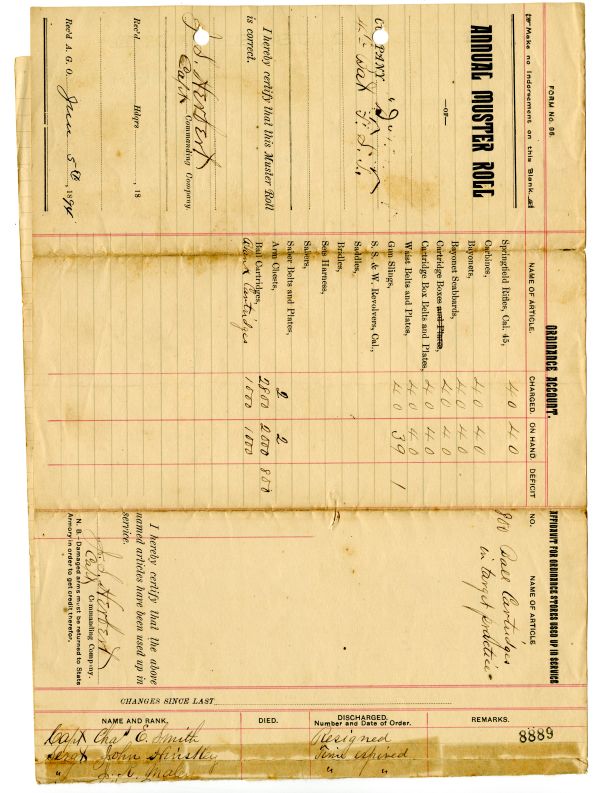 FORM No. 96.
Make no Indorsement on this Blank
ANNUAL MUSTER ROLL
—OF—
COMPANY
I hereby certify that this Muster Roll
is correct.
J. S. Herbert
Capt. Commanding Company.
Rec'd Hdqrs , 18
Rec'd A. G. O. , 189
ORDINANCE ACCOUNT.
NAME OF ARTICLE. CHARGED. ON HAND. DEFICIT
Springfield Rifles, Cal. 45, 40 40
Carbines,
Bayonets, 40 40
Bayonet Scabbards, 40 40
Cartridge Boxes and Plates, 40 40
Cartridge Box Belts and Plates, 40 40
Waist Belts and Plates, 40 40
Gun Slings, 40 39 1
S. S. & W. Revolvers, Cal.,
Saddles,
Bridles,
Sets Harness,
Sabers,
Saber Belts and Plates,
Arm Chests, 2 2
Ball Cartridges, 2800 2000 800
Blank Cartridges 1000 1000
AFFIDAVIT FOR ORDINANCE STORES USED UP IN SERVICE
NO. NAME OF ARTICLE
800 Ball Cartridges
in target practice
I hereby certify that the above
named articles have been used up in
service.
J. S. Herbert
Capt Commanding Company.
N. B.—Damaged arms must be returned to State
Armory in order to get credit therefor.
CHANGES SINCE LAST
NAME AND RANK. DIED. DISCHARGED. REMARKS.
Number and Date of Order.
8889
Capt Chas E. Smith Resigned
Sergt John Time expired
" J. K. " "